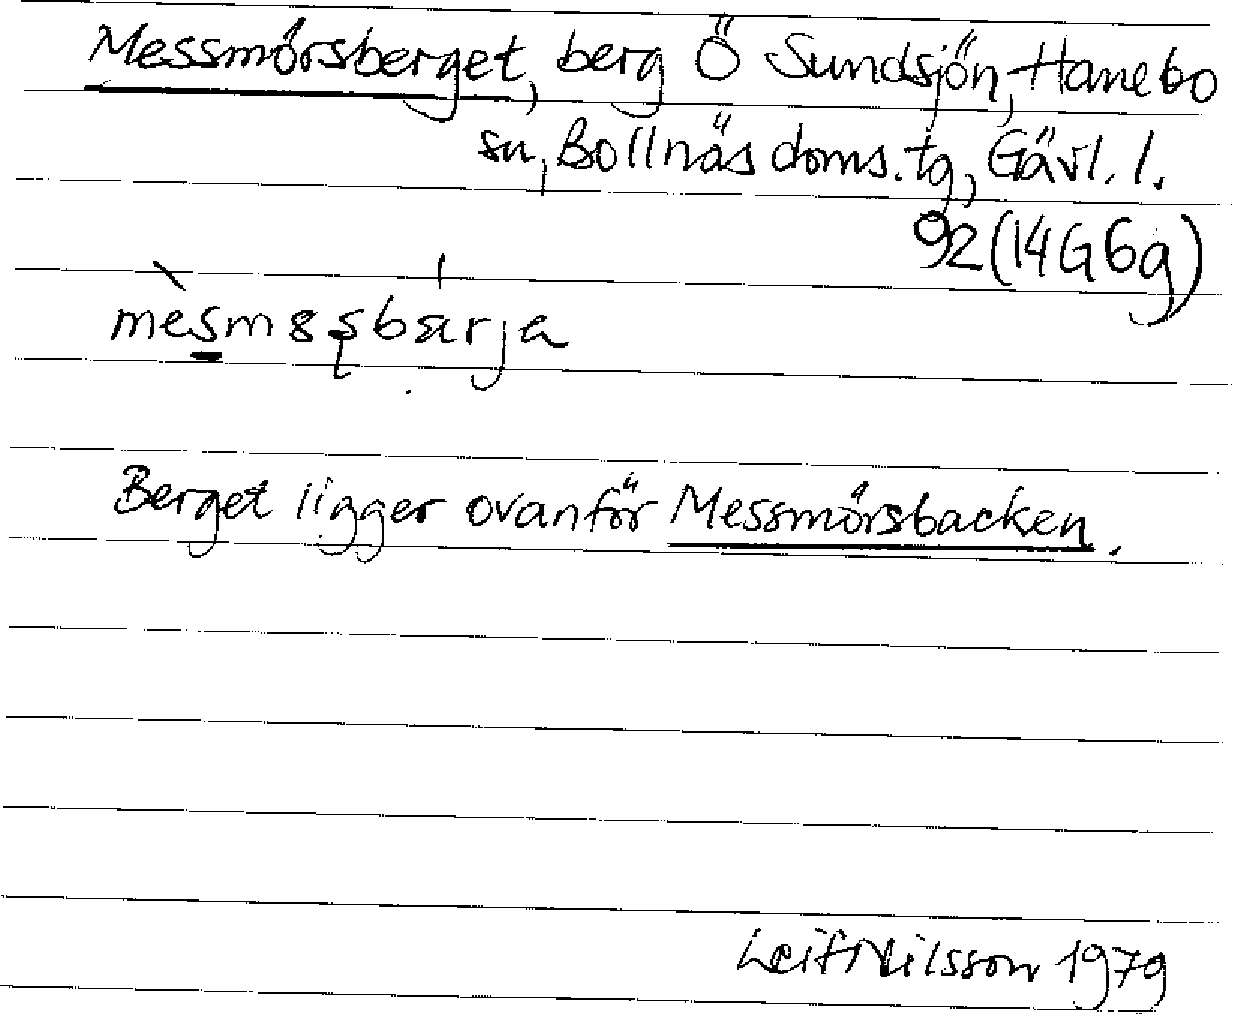 Messmörsberget, berg Ö Sundsjön, Hanebo
sn, Bollnäs doms.tg, Gävl. l.
92 (14G6g)
Berget ligger ovanför Messmörsbacken.
Leif Nilsson 1979